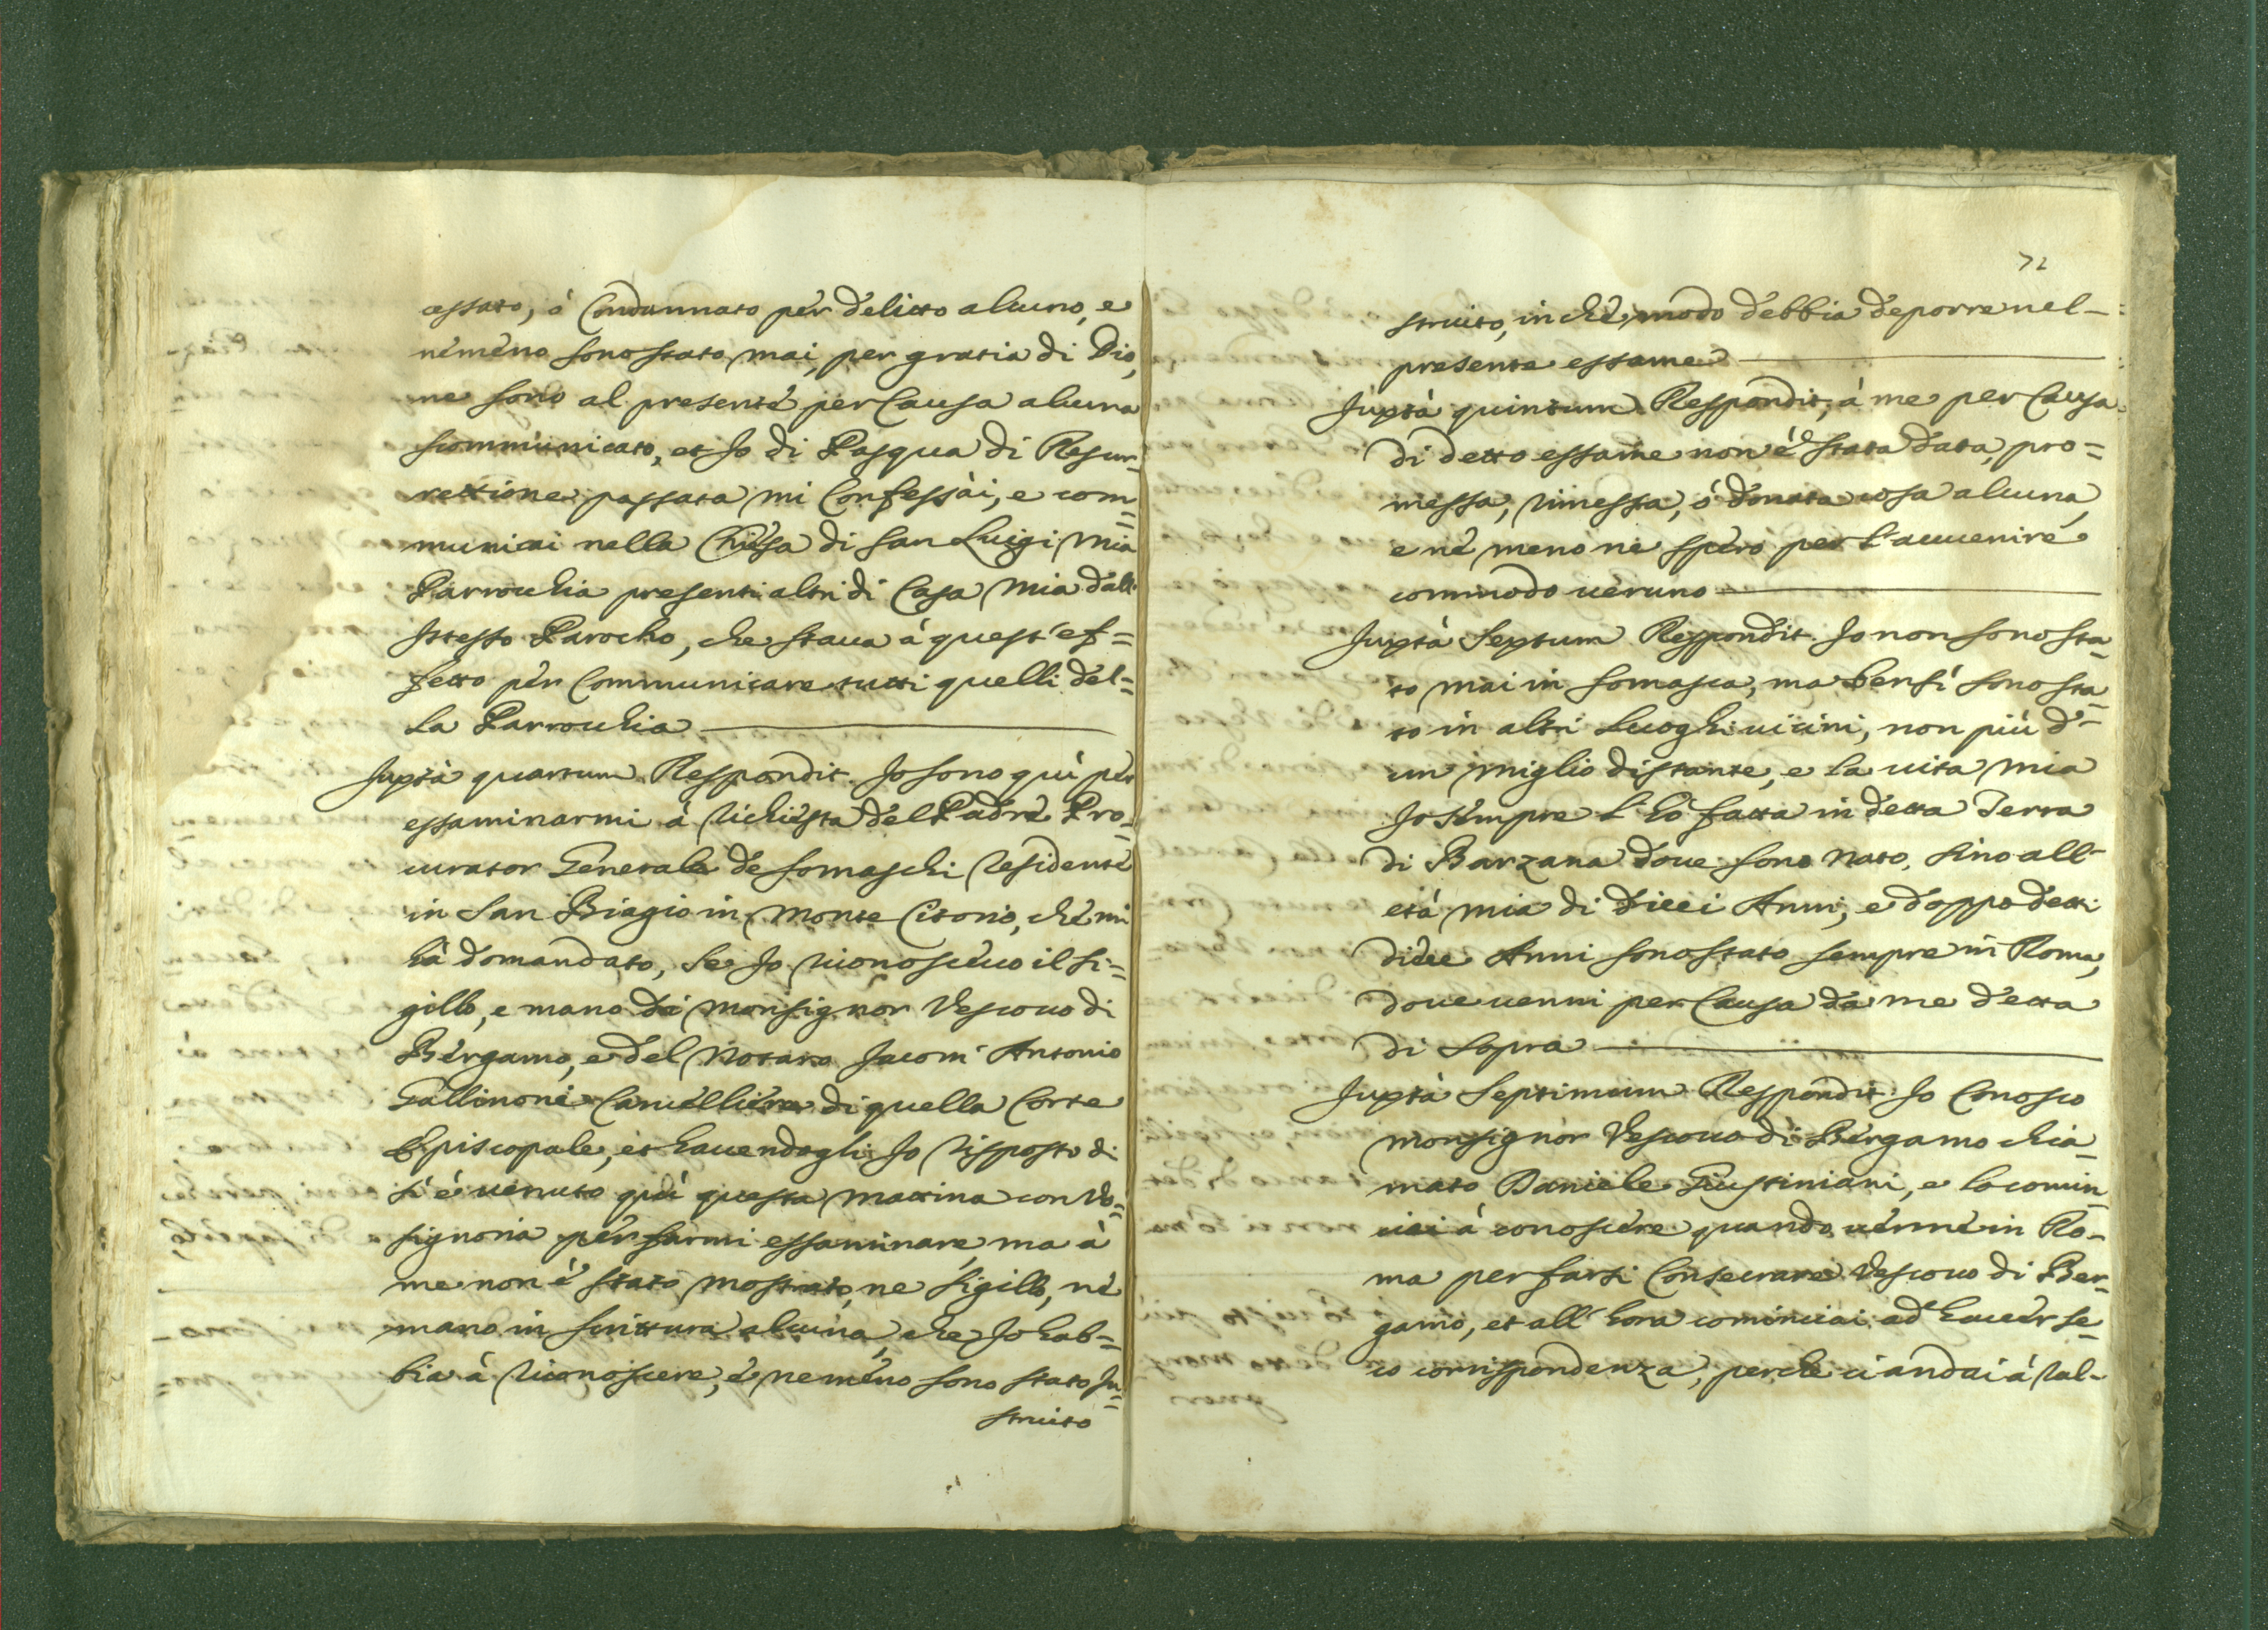 cessato, ò Condannato per delitto alcuno, e
nemeno sono stato mai, per gratia di Dio,
ne sono al presente per Causa alcuna
scommunicato, et Jo di Pasqua di Resur-
rettione passata mi Confessai, e com=
municai nella Chiesa di San Luigi mia
Parrochia presenti altri di Casa mia dall'
Istesso Parocho, che staua à quest'ef=
fetto per Communicare tutti quelli del=
la Parrochia
Juxtà quartum Respondit. Jo sono quì per
essaminarmi à richiesta del Padre Pro=
curator Generale de Somaschi residente
in San Biagio in Monte Citorio, che mi
hà domandato, se Jo riconosceuo il si=
gillo, e mano di Monsignor Vescouo di
Bergamo, e del Notaro Jacom' Antonio
Gallinoni Cancelliere di quella Corte
Episcopale, et hauendogli Jo risposto di
sì è uenuto quì questa mattina con Vo=
signoria per farmi essaminare, ma à
me non è stato mostrato, ne sigillo, nè
mano in scrittura alcuna, che Jo hab=
bia à riconoscere, è nemeno sono stato In=
struito
72
struito, in che modo debbia deporre nel-
presente essame
Juxtà quintum Respondit, à me per Causa
di detto essame non è stata data, pro=
messa, rimessa, ò donata cosa alcuna,
e nè meno ne spero per l'auuenire
commodo ueruno
Juxtà Sextum Respondit. Jo non sono sta=
to mai in Somasca, ma bensì sono sta=
to in altri Luoghi uicini, non più d'=
un miglio distante, e la uita mia
Jo sempre l'hò fatta in detta Terra
di Barzana doue sono nato, sino all'
età mia di dieci Anni, e doppo detti
dieci Anni sono stato sempre in Roma,
doue uenni per Causa da me detta
di sopra
Juxtà Septimum Respondit. Jo Conosco
Monsignor Vescouo di Bergamo chia=
mato Daniele Giustiniani, e lo comin=
ciai à conoscere quando uenne in Ro-
ma per farsi Consecrare Vescouo di Ber-
gamo, et all'hora cominciai ad hauer se=
co corrispondenza, perche ci andai à ral-